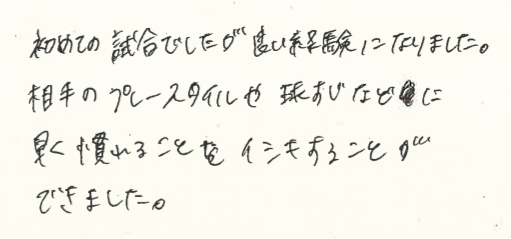 初めての試合でしたが良い経験になりました。
相手のプレースタイルや球すじなどに
早く慣れることをイシキすることが
できました。